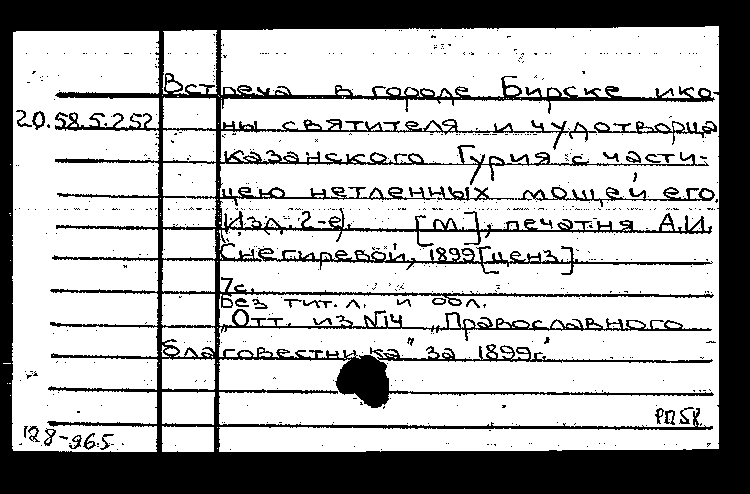 Встреча в городе Бирске ико-
20.58.5.252
ны святителя и чудотворца
казанского Гурия с части-
цею нетленных мощей его.
Изд. 2-е). [М.], печатня А.И.
Снегиревой, 1899 [ценз.].
7с.
Без тит. л. и обл.
"Отт. из №14 "Православного
благовестника" за 1899г."
РП58
128-965